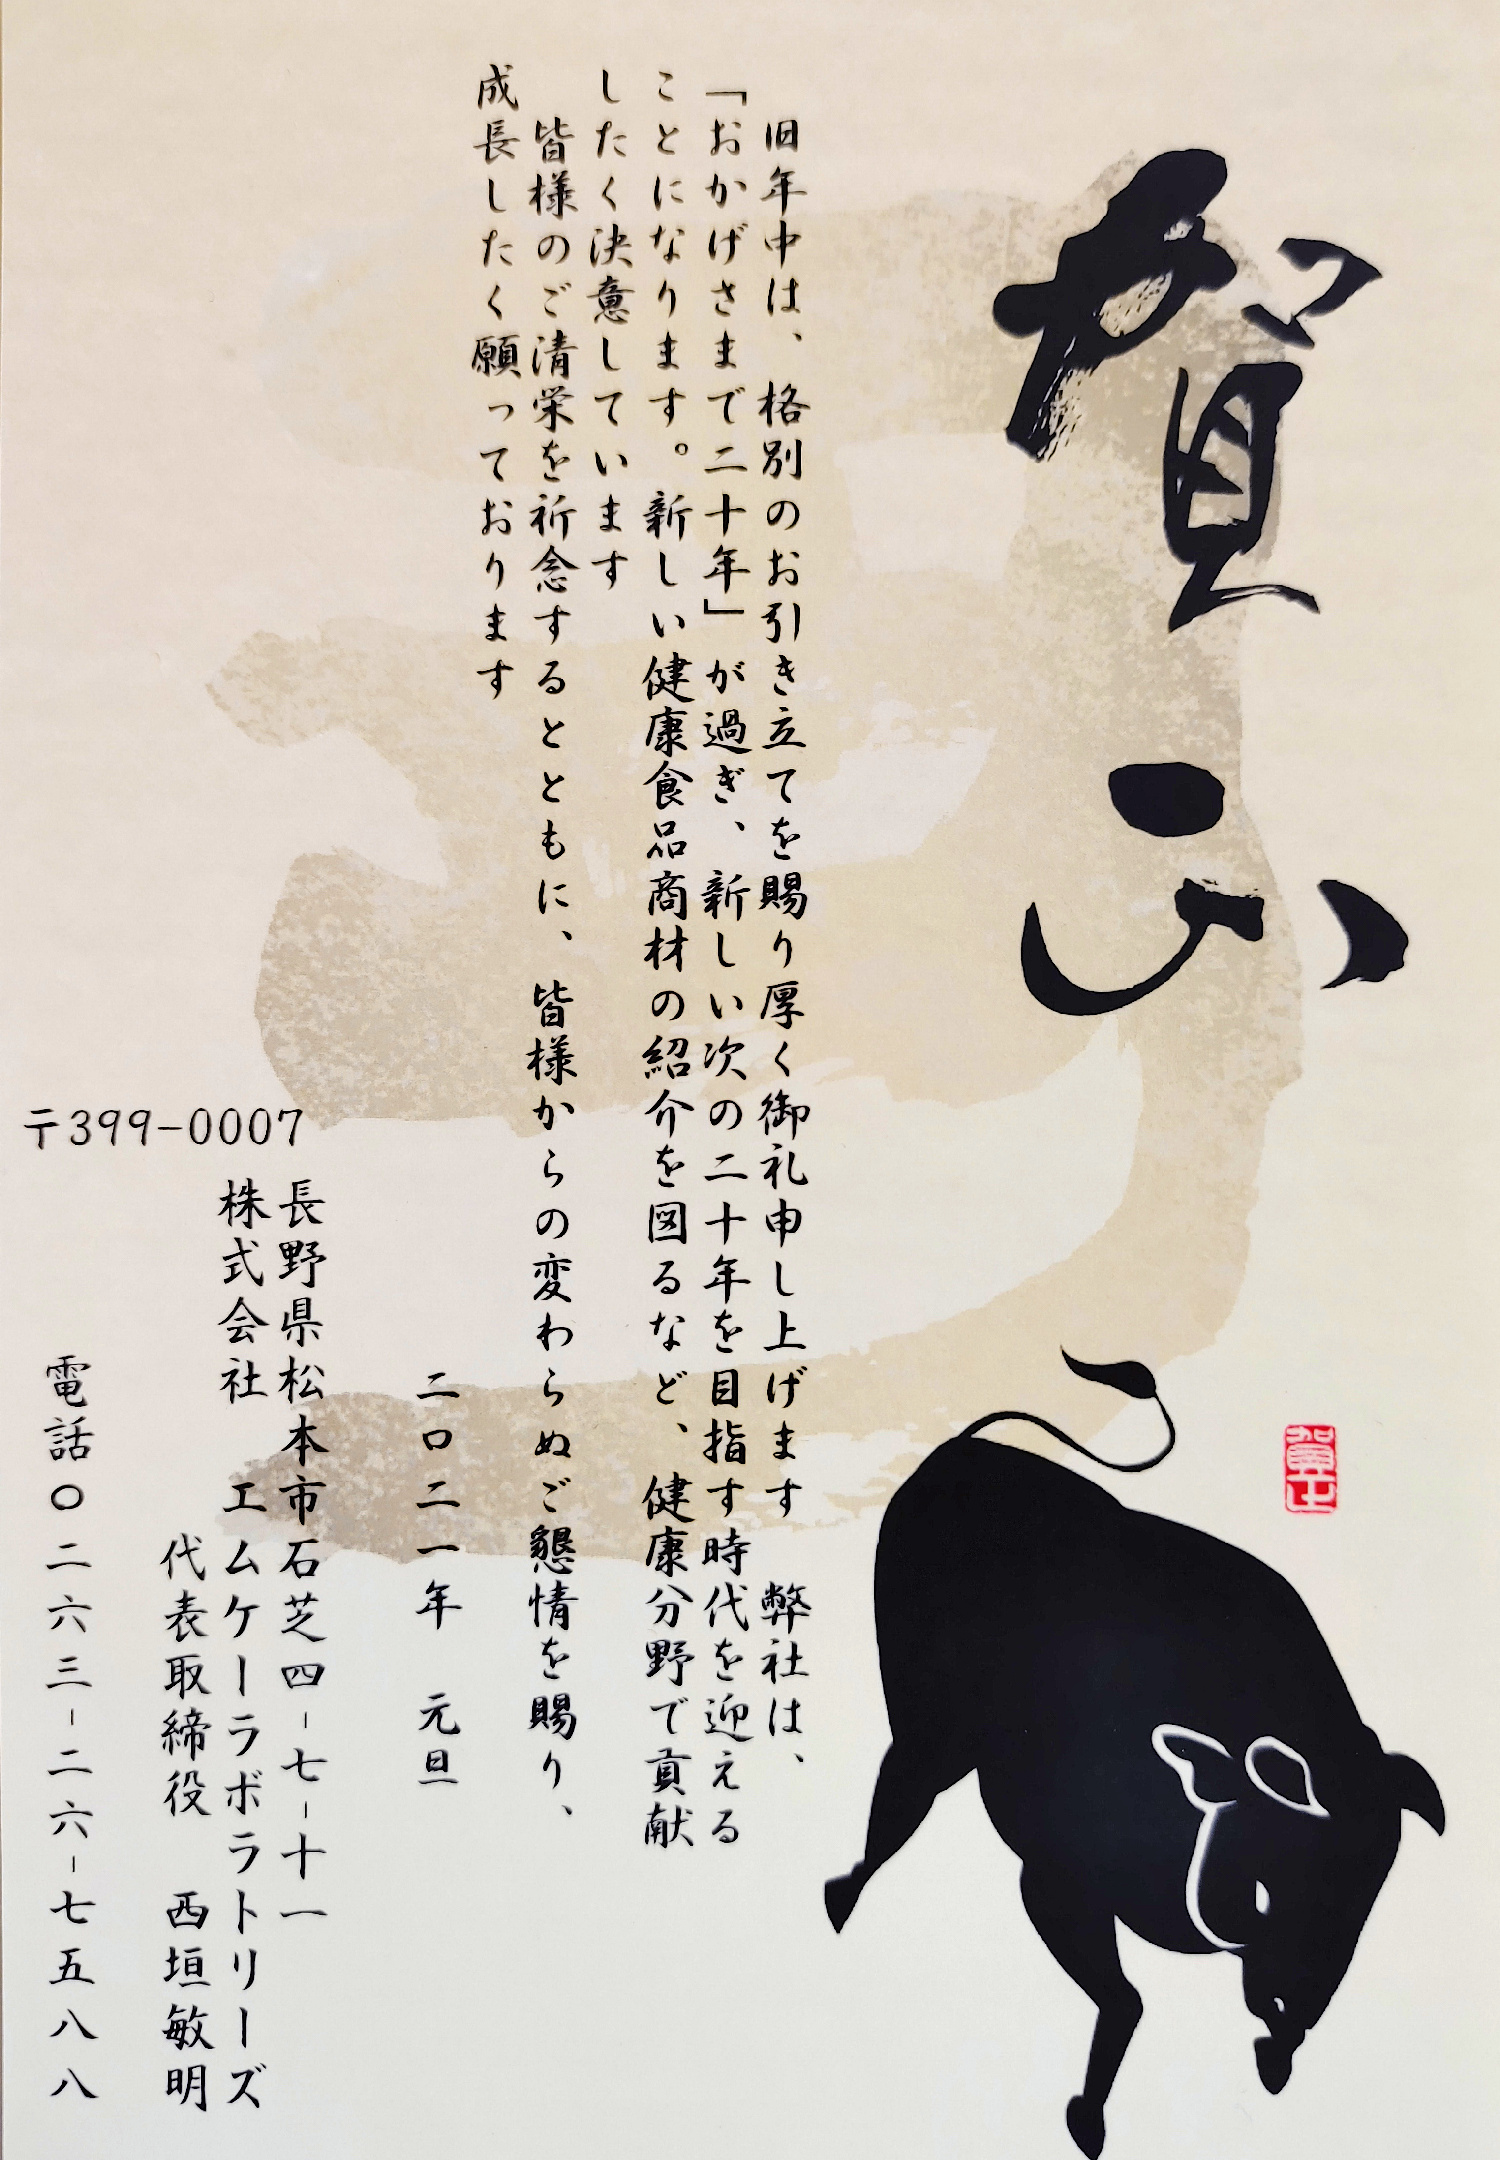 賀正
旧年中は、格別のお引き立てを賜り厚く御礼申し上げます　弊社は、
「おかげさまで二十年」が過ぎ、新しい次の二十年を目指す時代を迎える
ことになります。新しい健康食品商材の紹介を図るなど、健康分野で貢献
したく決意しています
皆様のご清栄を祈念するとともに、皆様からの変わらぬご懇情を賜り、
成長したく願っております
二〇二一年　元旦
〒399-0007
長野県松本市石芝四-七-十一
株式会社　エムケーラボラトリーズ
代表取締役　西垣敏明
電話〇二六三-二六-七五八八
賀正